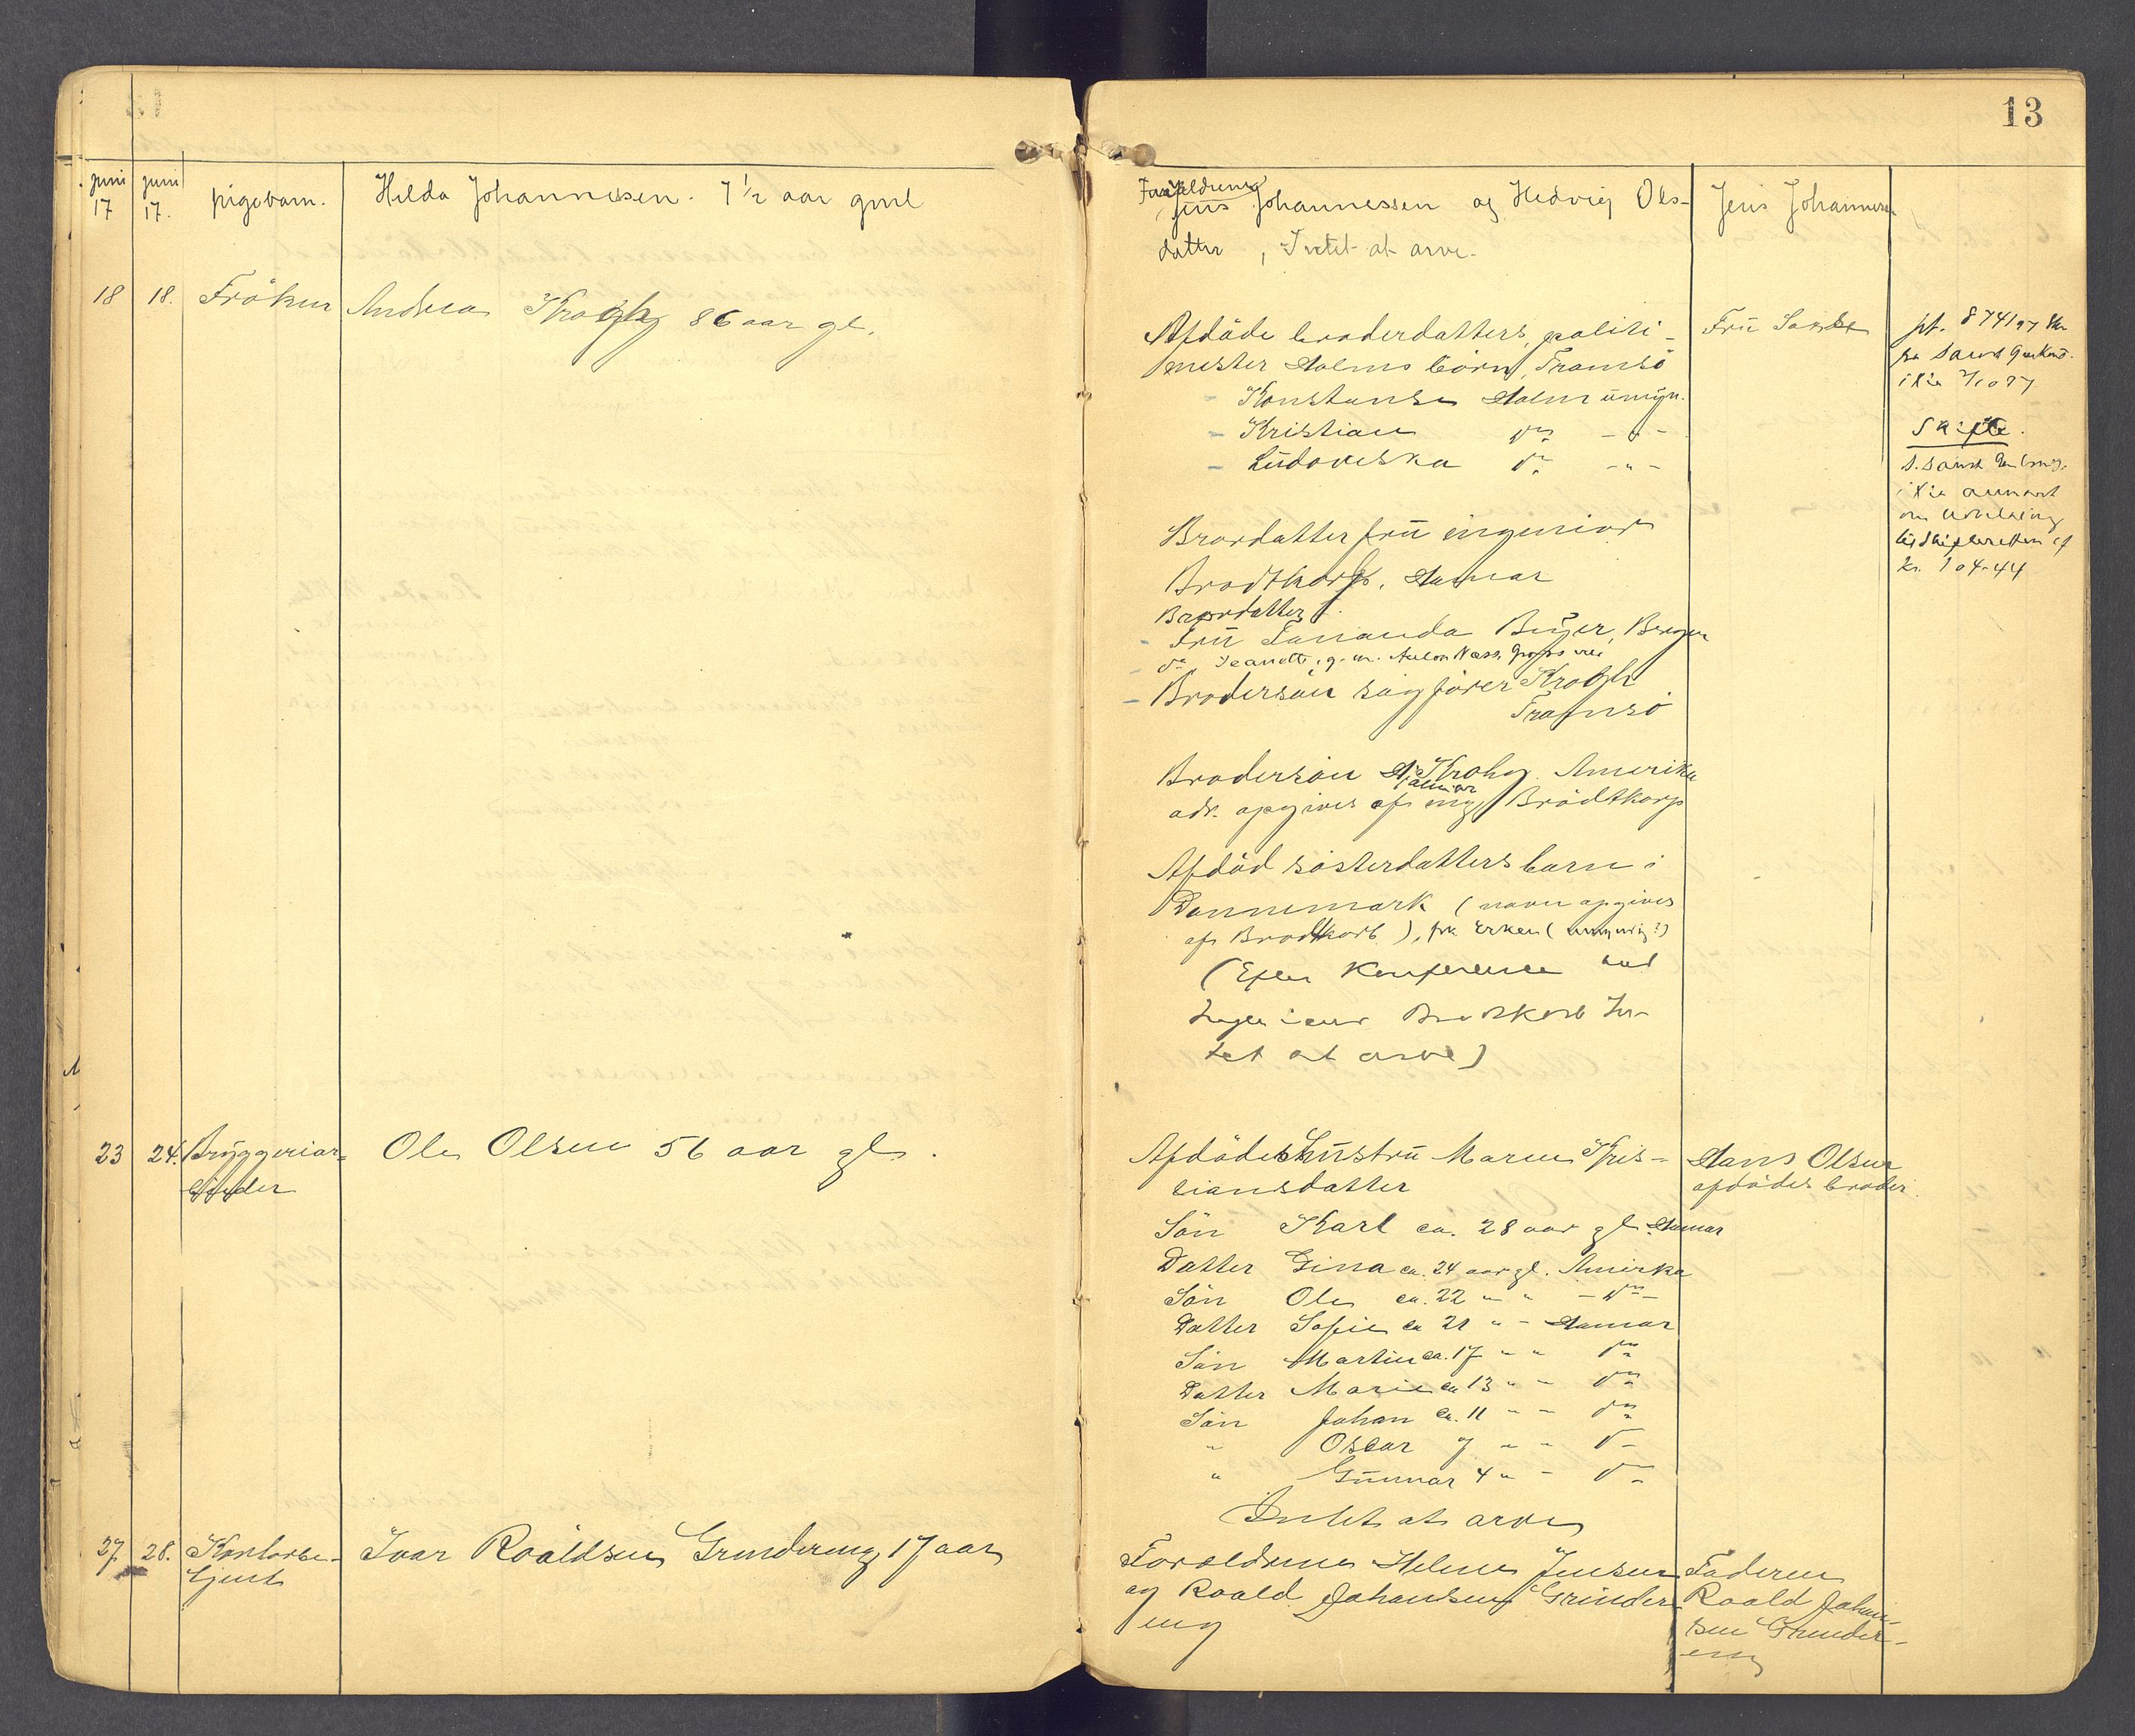 13
juni 17 juni 17. pigebarn. Hilda Johannessen. 7 1/2 aar gml
Forældrene
Jens Johannessen og Hedvig Ols-
datter, Intet at arve.
Jens Johannessen
18 18. Fröken Andrea Krogh 86 aar gl.
Afdöde broderdatters, politi-
mester Holms börn, Tromsö
- Konstanse Holm umyn.
- Kristian do - " -
- Ludoviska do - " -
Fru
pt. 874
Skifte.
kr. 104-44
Brordatter fru ingeniör
Brodtkorb, Hamar
Brordatter
- Fru Fananda Beyer, Bergen
- do Jeanette, g. m. Anton Næss,
- Brodersön sagförer Krogh
Tromsö
Brodersön Hjalmar Krohg. Amerika
adr. opgives af ing. Brödtkorp
Afdöd sösterdatters barn i
Dannemark (navn opgives
af Brodtkorb), frk Erken (umyndig?)
(Efter Konference med
Ingenieur Brodtkorb In-
tet at arve)
23 24. Bryggeriar-
beider
Ole Olsen 56 aar gl.
Afdödes hustru Maren Kris-
tiansdatter
Hans Olsen
afdödes broder.
Sön Karl ca. 28 aar gl. Hamar
Datter Gina ca. 24 aar gl. Amerika
Sön Ole ca. 22 " " - do -
Datter Sofie ca 21 " - Hamar
Sön Martin ca. 17 " " do
Datter Marie ca 13 " - do
Sön Johan ca. 11 - - do
" Oscar 7 " " do
" Gunnar 4 " - do
Intet at arve
27 28. Kontorbe-
tjent
Ivar Roaldsen Grundereng 17 aar
Forældrene Helene Jensen
og Roald Johansen Grunder-
eng
Faderen
Roald Johan-
sen Grunder-
eng